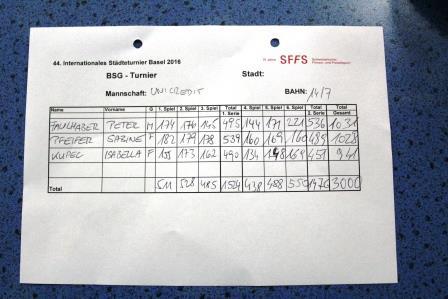 44. Internationales Städteturnier Basel 2016
SFFS
BSG - Turnier Stadt:
Mannschaft: UNICREDIT BAHN: 14/7
Name Vorname G 1. Spiel 2. Spiel 3. Spiel Total 1. Serie 4. Spiel 5. Spiel 6. Spiel Total 2. Serie Total Gesamt
FAULHABER PETER M 174 176 145 495 144 171 221 536 1031
PFEIFER SABINE F 182 179 178 539 160 169 160 489 1028
KUPEC ISABELLA F 155 173 162 490 134 148 169 451 941
Total 511 528 485 1524 438 488 550 1476 3000